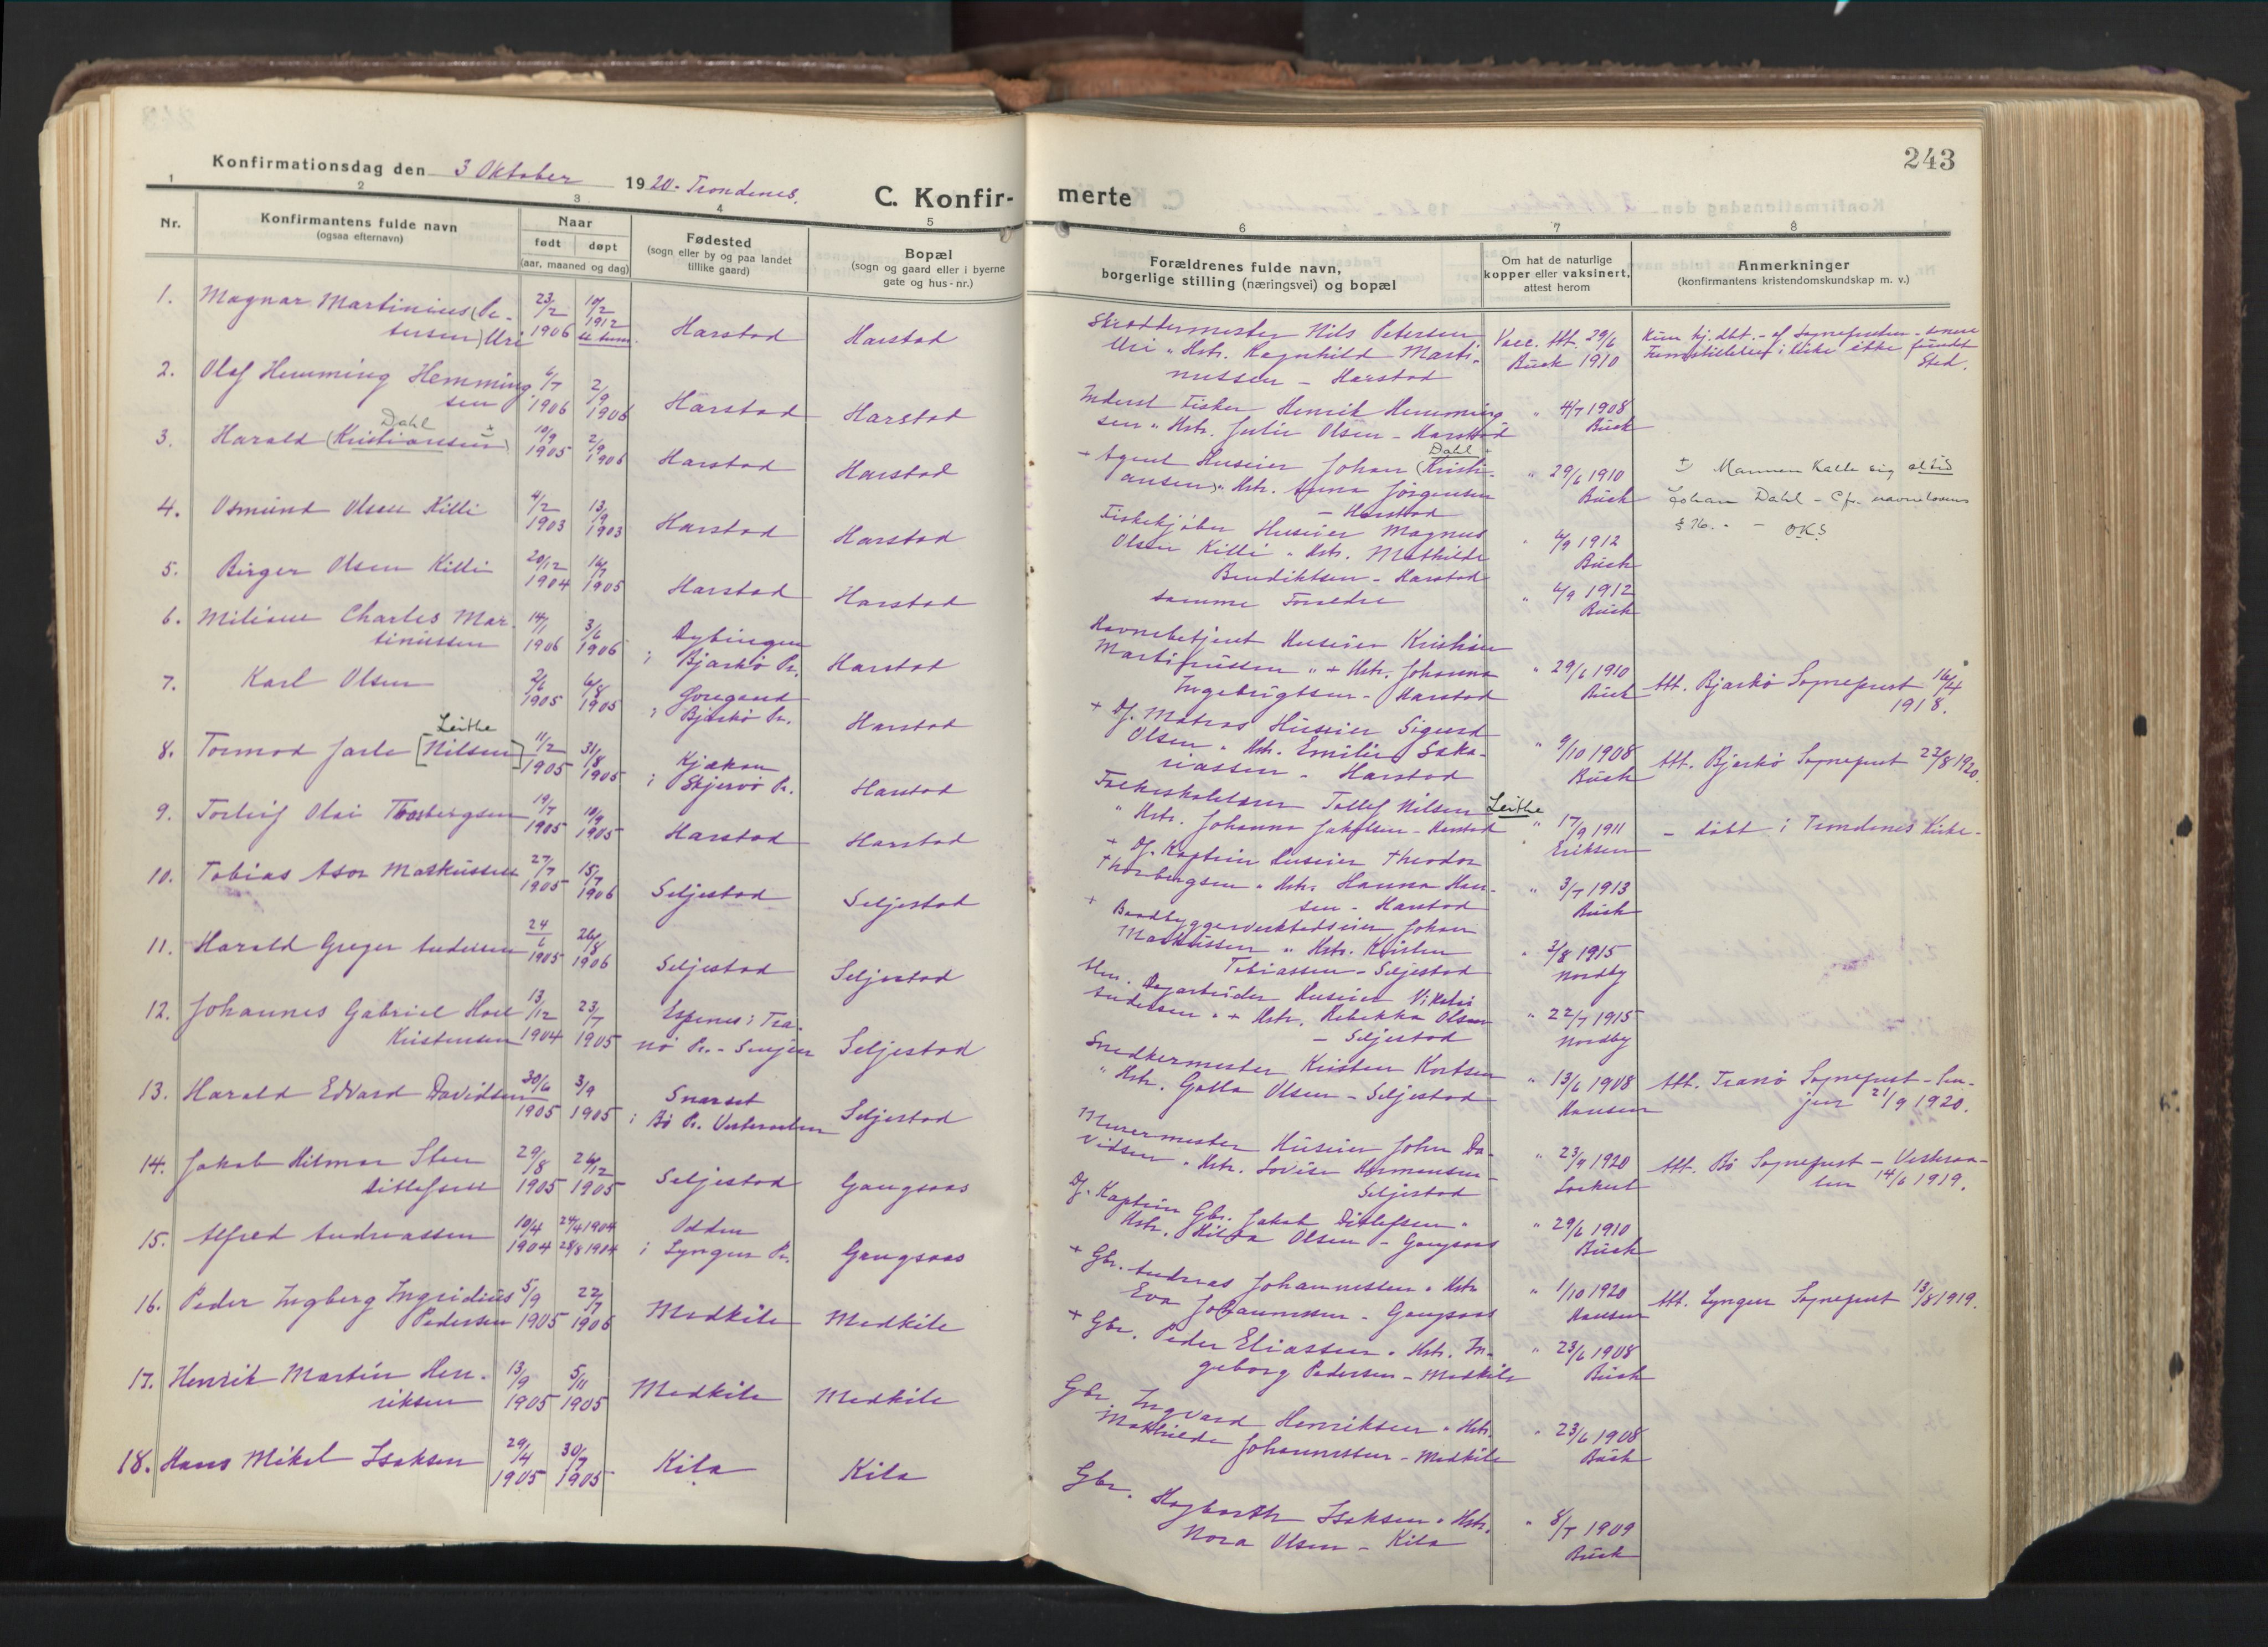 243
Konfirmationsdag den 3 Oktober 1920. Trondenes.
C. Konfir-
merte
1 2 3 4 5 6 7 8
Nr.
Konfirmantens fulde navn
(ogsaa efternavn)
Naar
født døpt
(aar, maaned og dag)
Fødested
(sogn eller by og paa landet
tillike gaard)
Bopæl
(sogn og gaard eller i byerne
gate og hus-nr.)
Forældrenes fulde navn,
borgerlige stilling (næringsvei) og bopæl
Om hat de naturlige
kopper eller vaksinert,
attest herom
Anmerkninger
(konfirmantens kristendomskundskap m. v.)
1. Magnar Martinius (Pe-
tersen) Uri 23/2 1906 10/2 1912 Harstad Harstad
Skræddermester Nils Petersen
Uri " Hstr. Ragnhild Marti-
nussen - Harstad
Vacc. Att. 29/6
Buck 1910
2. Olaf Hemming Hemming
sen 6/7 1906 2/9 1906 Harstad Harstad
Inderst Fisker Henrik Hemming
sen " Hstr. Julie Olsen - Harstad
" 4/7 1908
Buck
Dahl +
3. Harald (Kristiansen) 10/9 1905 2/9 1906 Harstad Harstad
Dahl +
Agent Huseier Johan (Kristi-
ansen) " Hstr. Anna Jörgensen
- Harstad
" 29/6 1910
Buck
+) Mannen kalle sig altid
Johan Dahl - Cfr. navnelovens
§ 16. - OKS
4. Osmund Olsen Killi 4/2 1903 13/9 1903 Harstad Harstad
Fiskekjøber Huseier Magnus
Olsen Killi " Hstr. Mathilde
Bendiktsen - Harstad
" 4/9 1912
Buck
5. Birger Olsen Killi 20/12 1904 16/7 1905 Harstad Harstad
samme Forældre
" 4/9 1912
Buck
6. Milian Charles Mar-
tinussen 14/1 1906 3/6 1906
i Bjarkø Pr. Harstad
Havnebetjent Huseier Kristian
Martinussen " + Hstr. Johanna
Ingebrigtsen - Harstad
" 29/6 1910
Buck
Att. Bjarkø Sogneprest 16/4
1918.
7. Karl Olsen 2/6 1905 6/8 1905
i Bjarkø Pr. Harstad
+ Df. Matros Huseier Sigurd
Olsen " Hstr. Emilie Saka-
riassen - Harstad
" 9/10 1908
Buck
Att. Bjarkø Sogneprest 22/8 1920.
Leithe
8. Tormod Jarle [Nilsen] 11/2 1905 31/8 1905 Kjækan
i Skjervø Pr. Harstad
Folkeskolelærer Tollef Nilsen Leithe
" Hstr. Johanna Jakobsen - Harstad
" 17/9 1911
Eriksen
- døbt i Trondenes Kirke -
9. Torleif Olai Thorbergsen 19/7 1905 10/9 1905 Harstad Harstad
+ Df. Kaptein Huseier Theodor
Thorbergsen " Hstr. Hanna Han-
sen - Harstad
" 3/7 1913
Buck
10. Tobias Asor Markussen 27/7 1905 15/7 1906 Seljestad Seljestad
+ Baadbyggerverkstedseier Johan
Markussen " Hstr. Kirsten
Tobiassen - Seljestad
" 3/8 1915
Nordby
11. Harald Greger Andersen 24/6 1905 26/8 1906 Seljestad Seljestad
Dagarbeider Huseier Viktor
Andersen " + Hstr. Rebekka Olsen
- Seljestad
" 22/7 1915
Nordby
12. Johannes Gabriel Hoel
Kristensen 13/12 1904 23/7 1905 Espenes i Tra-
nø Pr. - Senjen Seljestad
Snedkermester Kristen Kortsen
" Hstr. Golla Olsen - Seljestad
" 13/6 1908
Hansen
Att. Tranø Sogneprest - Sen-
jen 21/9 1920.
13. Harald Edvard Davidsen 30/6 1905 3/9 1905 Snarset
i Bø Pr. Vesteraalen Seljestad
Murermester Huseier John Da-
vidsen " Hstr. Lovise Hermansen -
Seljestad
" 23/9 1920
Lockert
Att. Bø Sogneprest - Vesteraa-
len 14/6 1919.
14. Jakob Hilmar Sten
Ditlefsen 29/8 1905 26/12 1905 Seljestad Gangsaas
Df. Kaptein Gbr. Jakob Ditlefsen "
Hstr. Hilda Olsen - Gangsaas
" 29/6 1910
Buck
15. Alfred Andreassen 10/4 1904 24/4 1904 28/8 1904 Odden
i Lyngen Pr. Gangsaas
+ Gbr. Andreas Johannessen " Hstr
Eva Johannessen - Gangsaas
" 1/10 1920
Hansen
Att. Lyngen Sogneprest 13/8 1919.
16. Peder Ingberg Ingridius
Pedersen 5/9 1905 22/7 1906 Medkile Medkile
+ Gbr. Peder Eliassen " Hstr. In-
geborg Pedersen - Medkile
" 23/6 1908
Buck
17. Henrik Martin Hen-
riksen 13/9 1905 5/11 1905 Medkile Medkile
Gbr. Ingvard Henriksen " Hstr.
Mathilde Johannessen - Medkile
" 23/6 1908
Buck
18. Hans Mikal Isaksen 29/4 1905 30/7 1905 Kila Kila
Gbr. Hagbarth Isaksen " Hstr.
Nora Olsen - Kila
" 8/7 1909
Buck